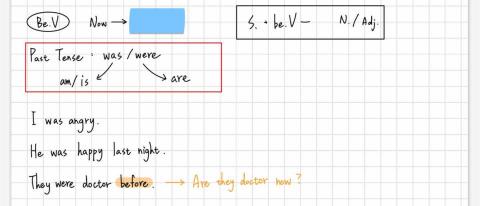 Be.V Now → S. + be.V — N./Adj.
Past Tense : was / were
am/is are
I was angry.
He was happy last night.
They were doctor before. → Are they doctor now?